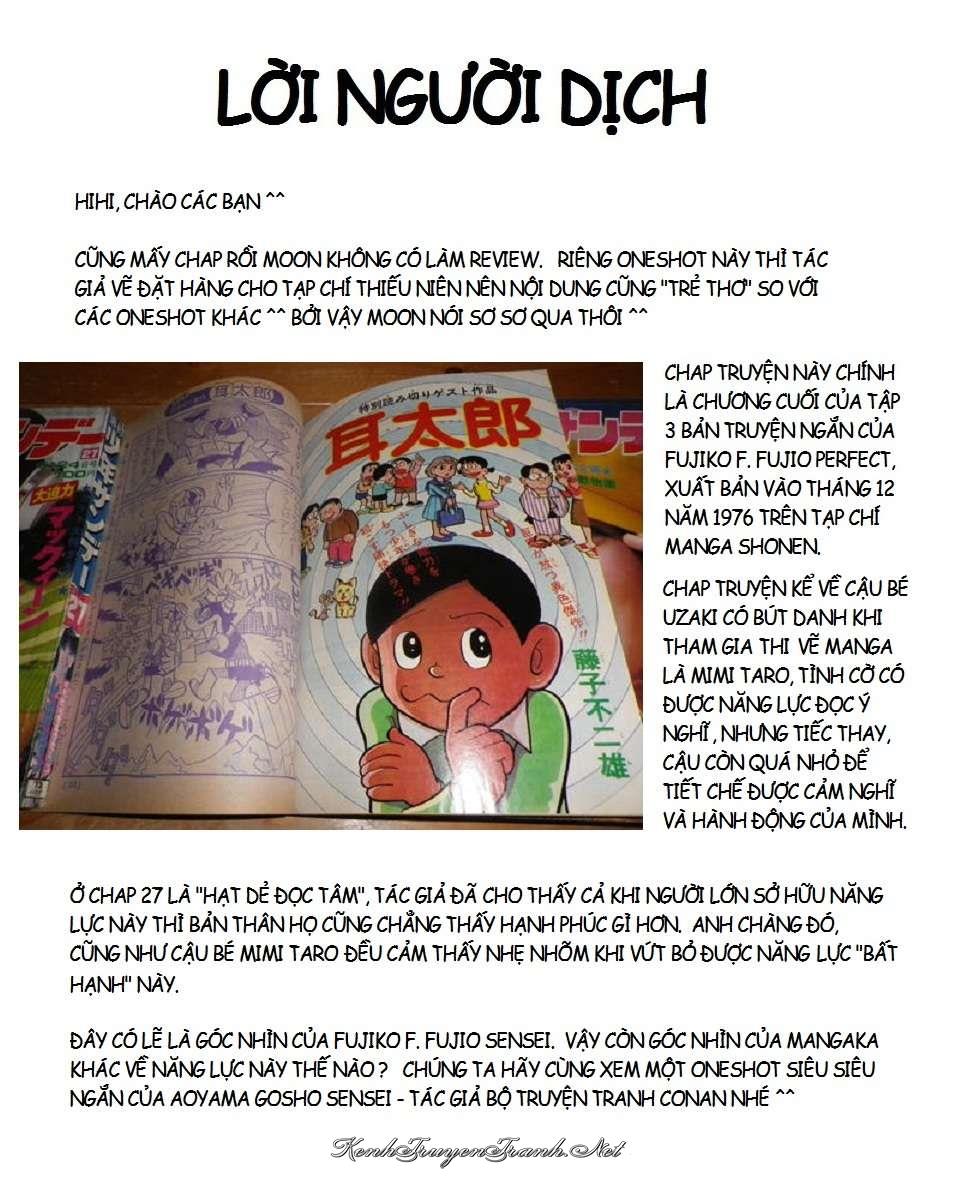 LỜI NGƯỜI DỊCH
HIHI, CHÀO CÁC BẠN ^^
CŨNG MẤY CHAP RỒI MOON KHÔNG CÓ LÀM REVIEW. RIÊNG ONESHOT NÀY THÌ TÁC
GIẢ VẼ ĐẶT HÀNG CHO TẠP CHÍ THIẾU NIÊN NÊN NỘI DUNG CŨNG "TRẺ THƠ" SO VỚI
CÁC ONESHOT KHÁC ^^ BỞI VẬY MOON NÓI SƠ SƠ QUA THÔI ^^
耳太郎
特別読み切りゲスト作品
耳太郎
藤子不二雄
ンデー
大迫力
マックイーン
CHAP TRUYỆN NÀY CHÍNH
LÀ CHƯƠNG CUỐI CỦA TẬP
3 BẢN TRUYỆN NGẮN CỦA
FUJIKO F. FUJIO PERFECT,
XUẤT BẢN VÀO THÁNG 12
NĂM 1976 TRÊN TẠP CHÍ
MANGA SHONEN.
CHAP TRUYỆN KỂ VỀ CẬU BÉ
UZAKI CÓ BÚT DANH KHI
THAM GIA THI VẼ MANGA
LÀ MIMI TARO, TÌNH CỜ CÓ
ĐƯỢC NĂNG LỰC ĐỌC Ý
NGHĨ, NHƯNG TIẾC THAY,
CẬU CÒN QUÁ NHỎ ĐỂ
TIẾT CHẾ ĐƯỢC CẢM NGHĨ
VÀ HÀNH ĐỘNG CỦA MÌNH.
Ở CHAP 27 LÀ "HẠT DẺ ĐỌC TÂM", TÁC GIẢ ĐÃ CHO THẤY CẢ KHI NGƯỜI LỚN SỞ HỮU NĂNG
LỰC NÀY THÌ BẢN THÂN HỌ CŨNG CHẲNG THẤY HẠNH PHÚC GÌ HƠN. ANH CHÀNG ĐÓ,
CŨNG NHƯ CẬU BÉ MIMI TARO ĐỀU CẢM THẤY NHẸ NHÕM KHI VỨT BỎ ĐƯỢC NĂNG LỰC "BẤT
HẠNH" NÀY.
ĐÂY CÓ LẼ LÀ GÓC NHÌN CỦA FUJIKO F. FUJIO SENSEI. VẬY CÒN GÓC NHÌN CỦA MANGAKA
KHÁC VỀ NĂNG LỰC NÀY THẾ NÀO ? CHÚNG TA HÃY CÙNG XEM MỘT ONESHOT SIÊU SIÊU
NGẮN CỦA AOYAMA GOSHO SENSEI - TÁC GIẢ BỘ TRUYỆN TRANH CONAN NHÉ ^^
KenhTruyenTranh.Net